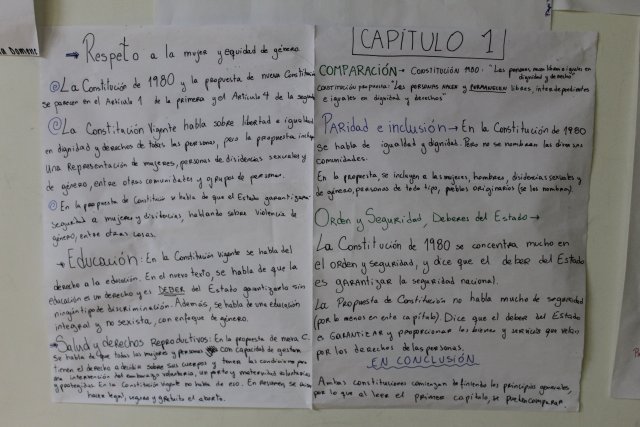 → Respeto a la mujer y equidad de género
La Constitución de 1980 y la propuesta de nueva Constitución
se parecen en el Artículo 1 de la primera y el Artículo 4 de la segunda
La Constitución Vigente habla sobre libertad e igualdad
en dignidad y derechos de todas las personas, pero la propuesta incluye
una Representación de mujeres, personas de disidencias sexuales y
de género, entre otras comunidades y grupos de personas.
En la propuesta de Constitución habla de que el Estado garantizará
seguridad a mujeres y disidencias, hablando sobre violencia de
género, entre otras cosas.
→ Educación: En la Constitución Vigente se habla del
derecho a la educación. En el nuevo texto, se habla de que la
educación es un derecho y es DEBER del Estado garantizarlo sin
ningún tipo de discriminación. Además, se habla de una educación
integral y no sexista, con enfoque de género.
→ Salud y derechos Reproductivos: En la propuesta de nueva C.
se habla de que todas las mujeres y personas con capacidad de gestar
tienen el derecho a decidir sobre sus cuerpos y tener las condiciones para
una interrupción del embarazo voluntaria, un parto y maternidad voluntarios
y protegidos. En la Constitución Vigente no habla de eso. En Resumen, se busca
hacer legal, seguro y gratuito el aborto.
CAPÍTULO 1
COMPARACIÓN → CONSTITUCIÓN 1980: "Las personas nacen libres e iguales en
dignidad y derechos"
CONSTITUCIÓN PROPUESTA: "Las PERSONAS NACEN y PERMANECEN libres, interdependientes
e iguales en dignidad y derechos"
Paridad e inclusión → En la Constitución de 1980
se habla de igualdad y dignidad. Pero no se nombran las diversas
comunidades.
En la propuesta, se incluyen a las mujeres, hombres, disidencias sexuales y
de género, personas de todo tipo, pueblos originarios (se los nombra).
Orden y Seguridad, Deberes del Estado →
La Constitución de 1980 se concentra mucho en
el orden y seguridad, y dice que el deber del Estado
es garantizar la seguridad nacional.
La Propuesta de Constitución no habla mucho de seguridad
(por lo menos en este capítulo). Dice que el deber del Estado
es GARANTIZAR y proporcionar los bienes y servicios que velan
por los derechos de las personas.
EN CONCLUSIÓN
Ambas constituciones comienzan definiendo los principios generales,
por lo que al leer el primer capítulo, se pueden comparar